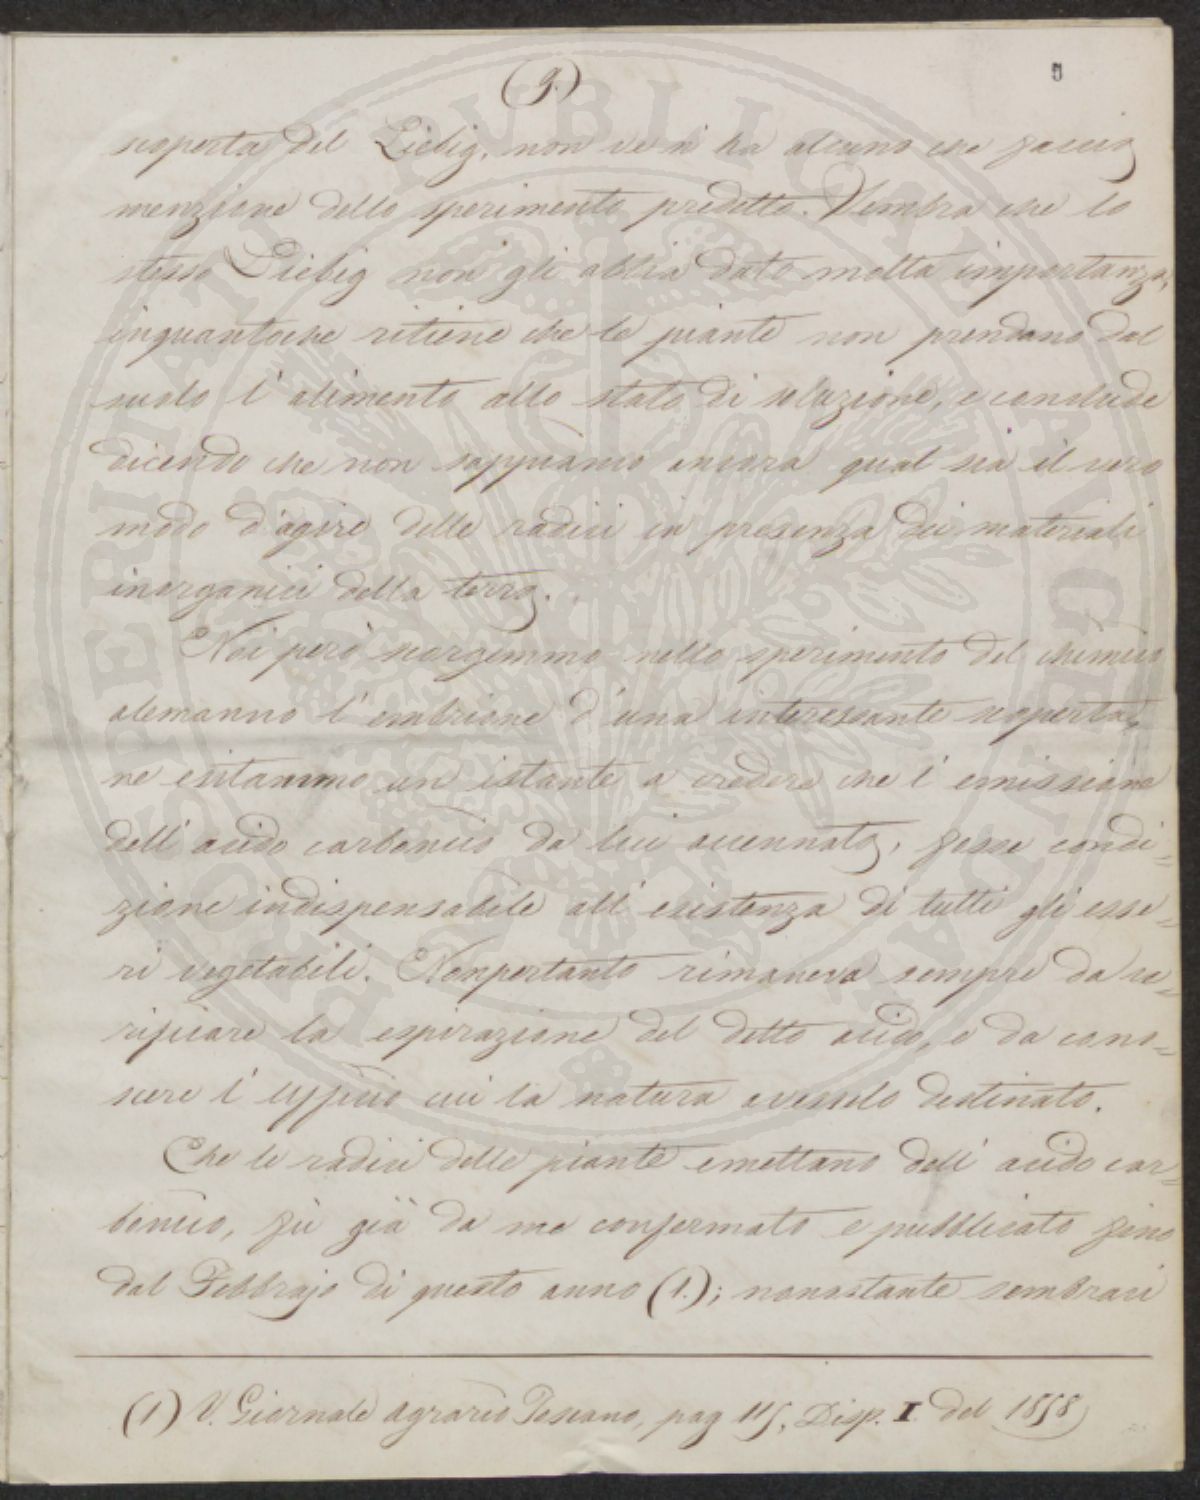 (9.)
5
scoperta del Liebig, non ve n' ha alcuno che faccia
menzione dello sperimento predetto. Sembra che lo
stesso Liebig non gli abbia dato molta importanza,
inquantoche ritiene che le piante non prendano dal
suolo l' alimento allo stato di soluzione, e conclude
dicendo che non sappiamo ancora qual sia il vero
modo d'agire delle radici in presenza dei materiali
inorganici della terra.
Noi però scorgemmo nello sperimento del chimico
alemanno l' embrione d' una interessante scoperta,
ne esitammo un istante a credere che l' emissione
dell' acido carbonico da lui accennata, fosse condi=
zione indispensabile all' esistenza di tutti gli esse=
ri vegetabili. Nonpertanto rimaneva sempre da ve=
rificare la espirazione del detto acido, e da cono=
scere l' ufficio cui la natura avesselo destinato.
Che le radici delle piante emettano dell' acido car=
bonico, fù già da me confermato e pubblicato fino
dal Febbrajo di questo anno (1.); nonostante sembraci
(1) V. Giornale agrario Toscano, pag 115, Disp. I. del 1858
PROSPERITATI PVBLICAE AVGENDAE